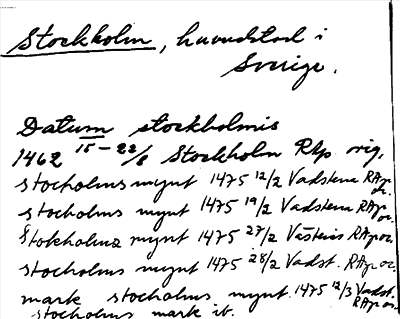 Stockholm, huvudstad i
Sverige.
Datum stockholmis
1462 15-22/8 Stockholm RAp orig.
stocholms mynt 1475 12/2 Vadstena RAp or.
stocholms mynt 1475 19/2 Vadstena RAp or.
Stokholmz mynt 1475 27/2 Västerås RAp or.
stocholms mynt 1475 28/2 Vadst. RAp or.
mark stocholms mynt 1475 12/3 Vadst. RAp or.
stocholms mark ib.